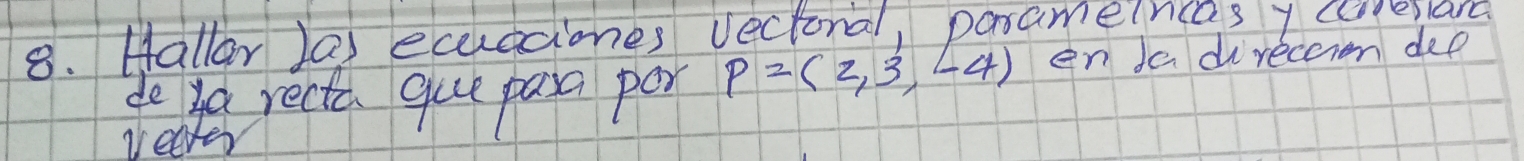 8. Hallar las ecuaciones vectorial, paramétricas y cartesiana
de la recta que pasa por P=(2,3,-4) en la dirección del
vector